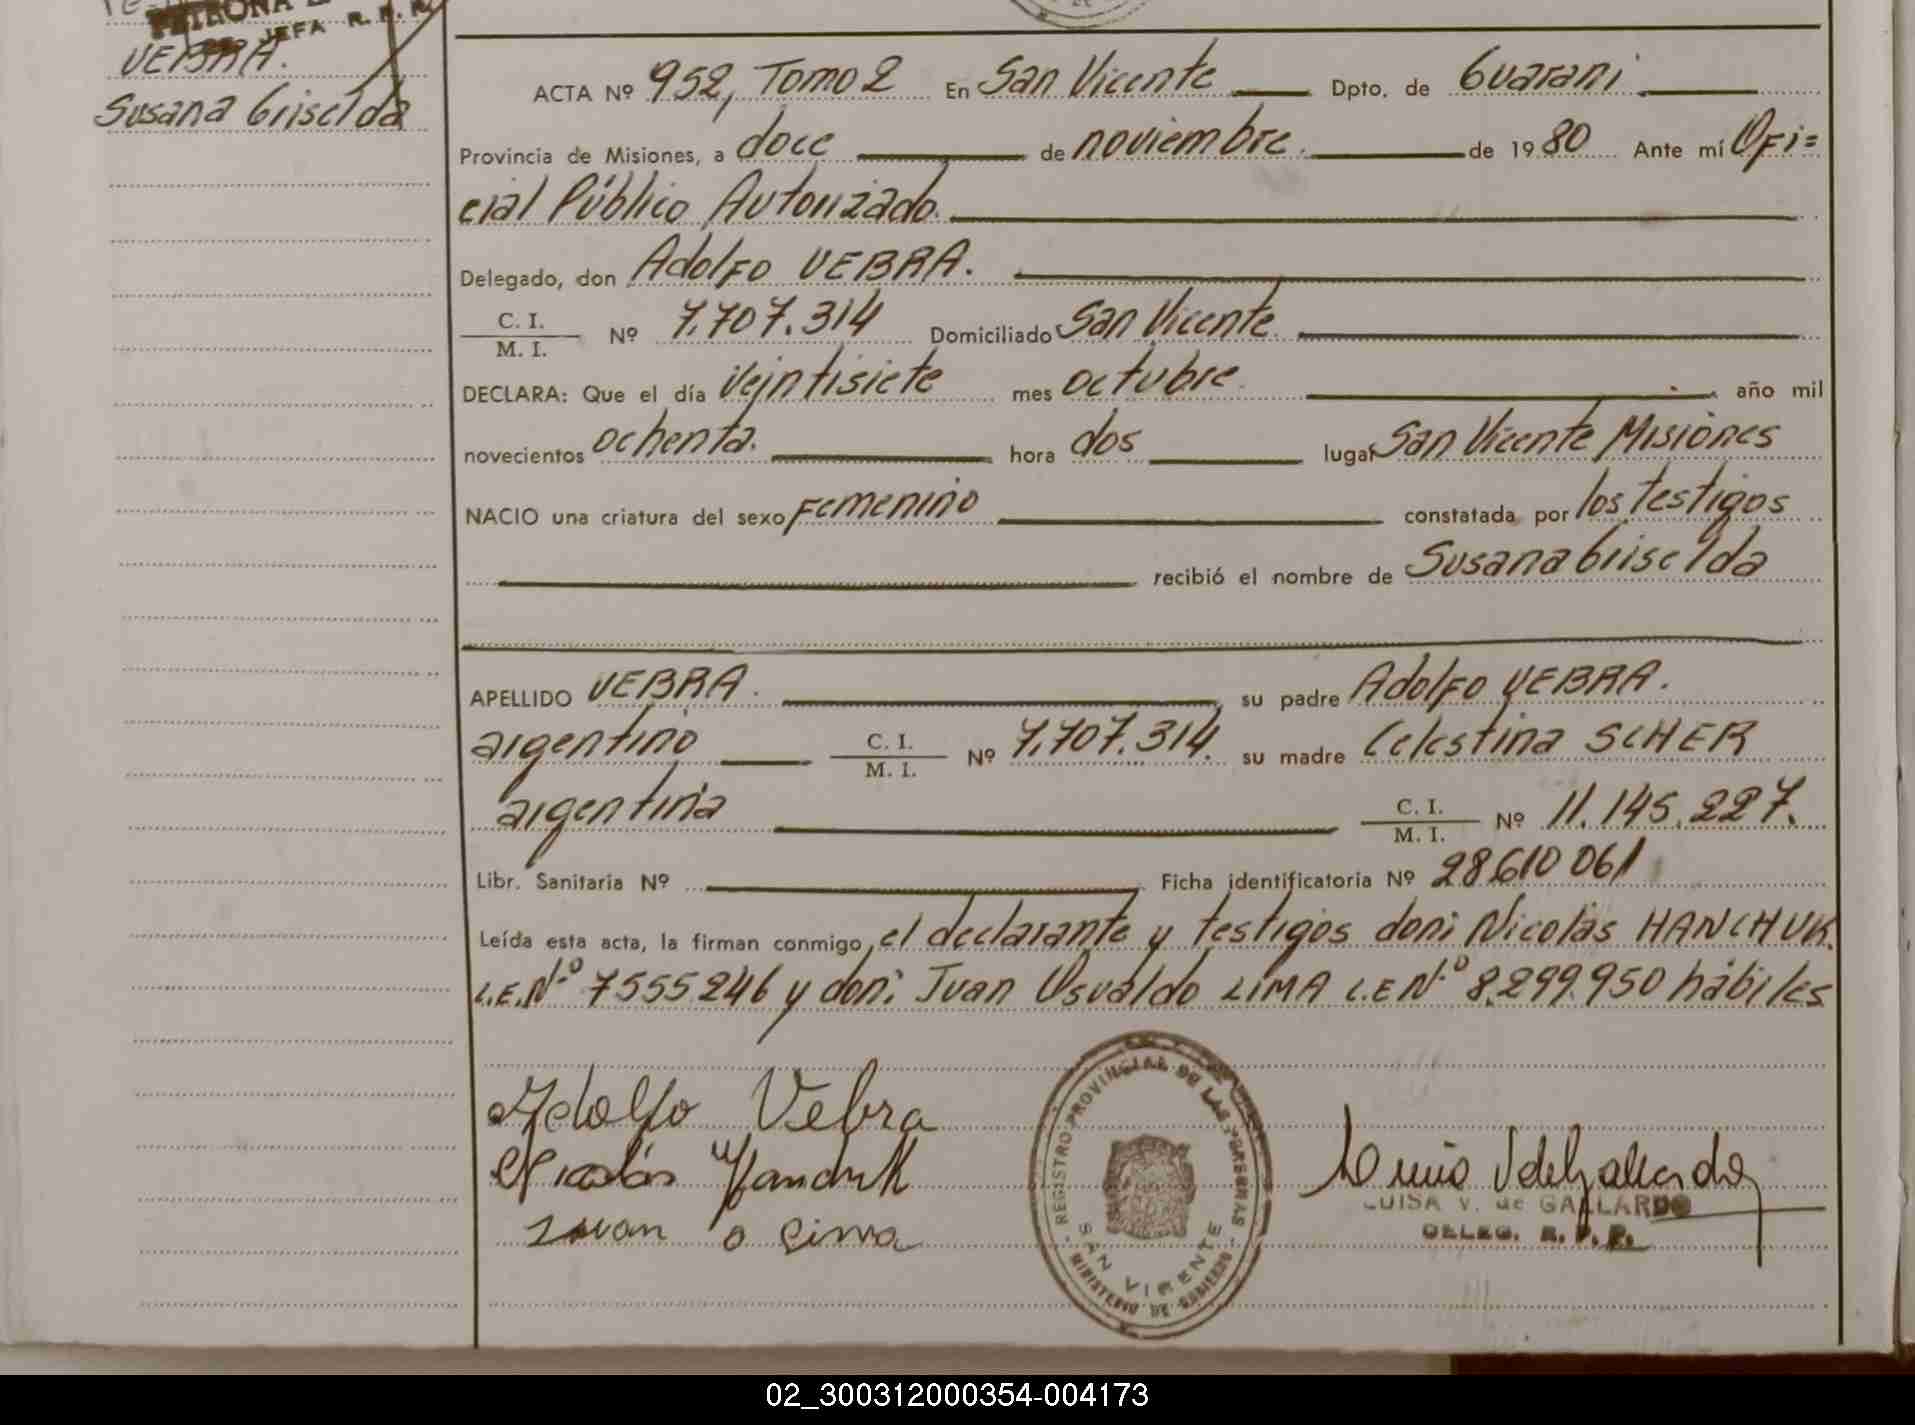 PETRONA
JEFA R. P. P.
VEBRA.
Susana Griselda
ACTA Nº 952, Tomo 2 En San Vicente Dpto. de Guarani.
Provincia de Misiones, a doce de noviembre. de 1980 Ante mí Ofi=
cial Público Autorizado.
Delegado, don Adolfo VEBRA.
C. I. / M. I. Nº 7.707.314 Domiciliado San Vicente
DECLARA: Que el día veintisiete mes octubre. año mil
novecientos ochenta. hora dos lugar San Vicente Misiones
NACIO una criatura del sexo femenino constatada por los testigos
recibió el nombre de Susana Griselda
APELLIDO VEBRA. su padre Adolfo VEBRA.
argentino C. I. / M. I. Nº 7.707.314. su madre Celestina SCHER
argentina C. I. / M. I. Nº 11.145.227.
Libr. Sanitaria Nº Ficha identificatoria Nº 28610061
Leída esta acta, la firman conmigo, el declarante y testigos don: Nicolás HANCHUK.
L.E.Nº 7555246 y don: Juan Osvaldo LIMA L.E Nº 8.299.950 hábiles
Adolfo Vebra
Nicolás Hanchuk
Juan O Lima
REGISTRO PROVINCIAL DE LAS PERSONAS
SAN VICENTE
MINISTERIO DE GOBIERNO
LUISA V. de GALLARDO
DELEG. R. P. P.
02_300312000354-004173